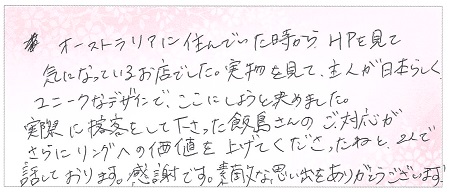 オーストラリアに住んでいた時から HPを見て
気になっているお店でした。実物を見て、主人が日本らしく
ユニークなデザインで、ここにしようと決めました。
実際に接客をして下さった飯島さんのご対応が
さらにリングへの価値を上げてくださったねと、2人で
話しております。感謝です。素敵な思い出をありがとうございます!